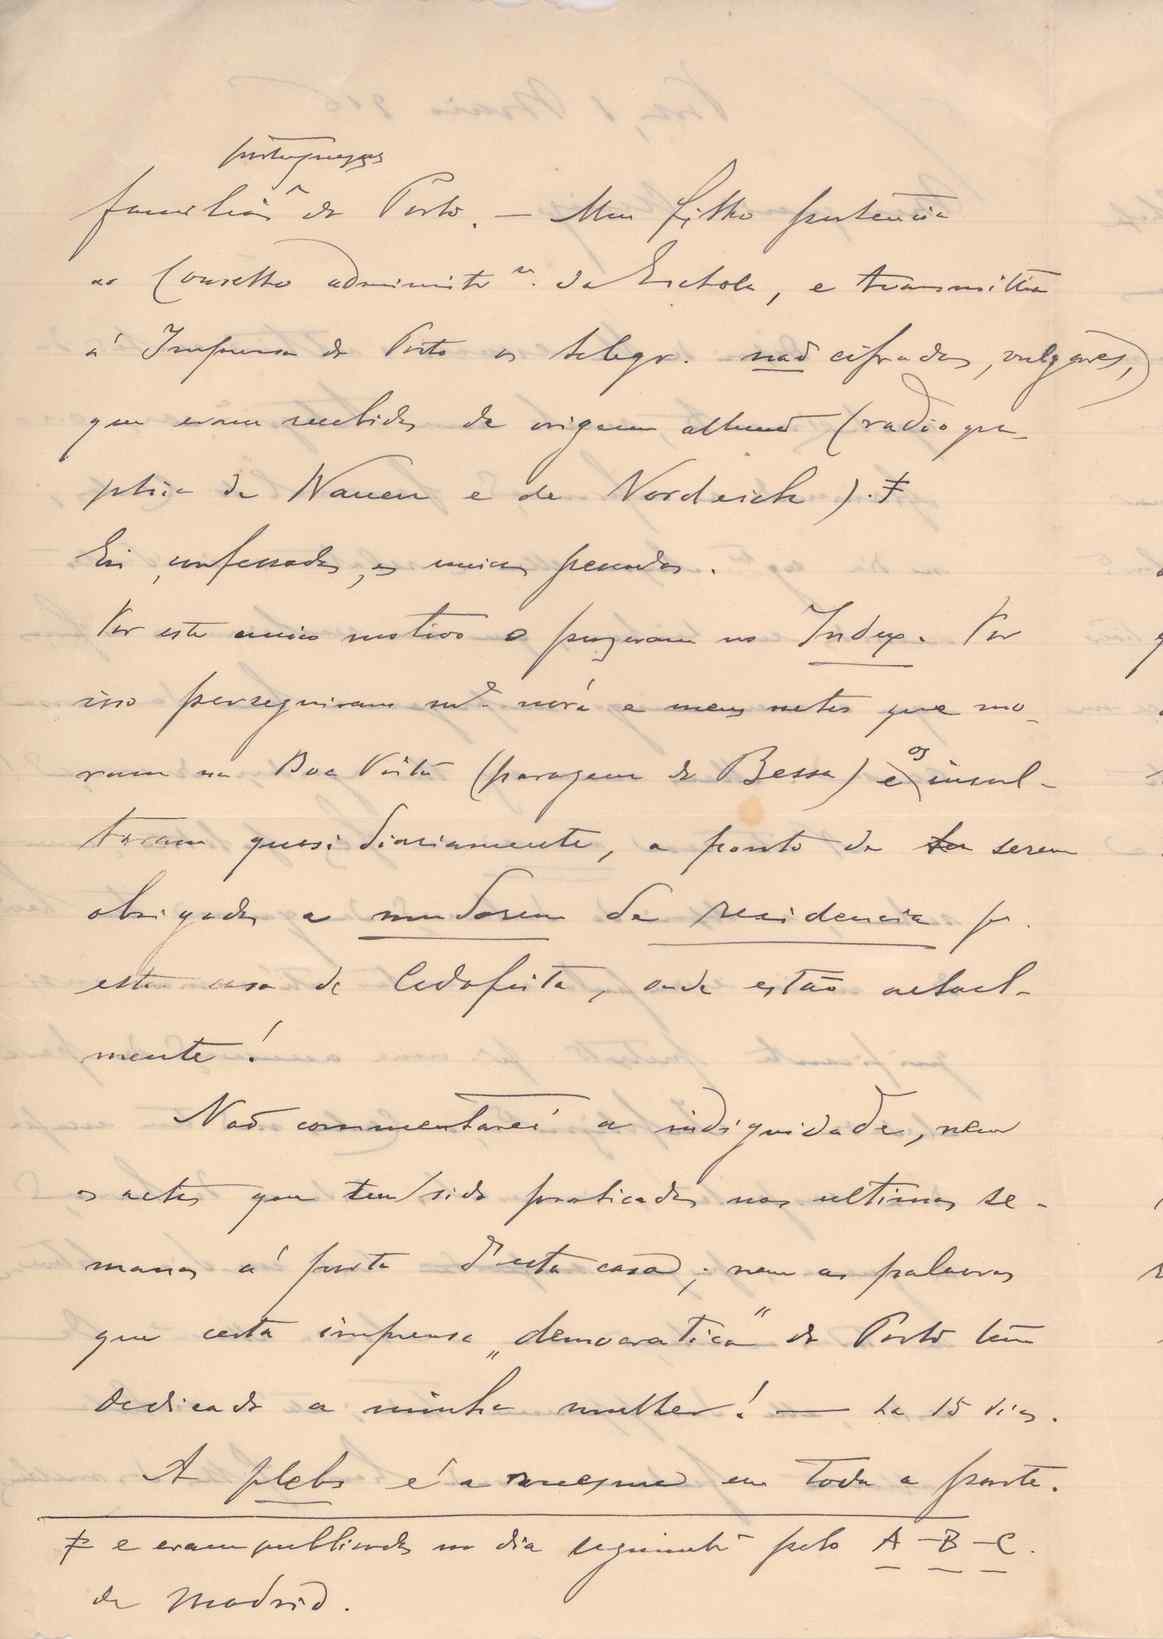 portuguezas
familias ^ do Porto. — Meu filho pertencia
ao Conselho administr.º da Eschola, e transmittia
á Imprensa do Porto os telegr. não cifrados, vulgares,
que eram recebidos de origem allemã (radiogra-
phia de Nauen e de Nordeich). ‡
Eis, confessados, os unicos peccados.
Por este unico motivo o puzeram no Index. Por
isso perseguiram m.ª nóra e meus netos que mo-
ram na Boa Vista (paragem do Bessa) e os insul-
taram quasi diariamente, a ponto de serem
obrigados a mudarem de residencia p.
esta casa de Cedofeita, onde estão actual-
mente!
Não commentarei a indignidade, nem
os actos que tem sido praticados nas ultimas se-
manas á porta d'esta casa; nem as palavras
que certa imprensa „democratica" do Porto tem
dedicado a minha mulher! — ha 15 dias.
A plebs é a mesma em toda a parte.
‡ e eram publicados no dia seguinte pelo A-B-C.
de Madrid.